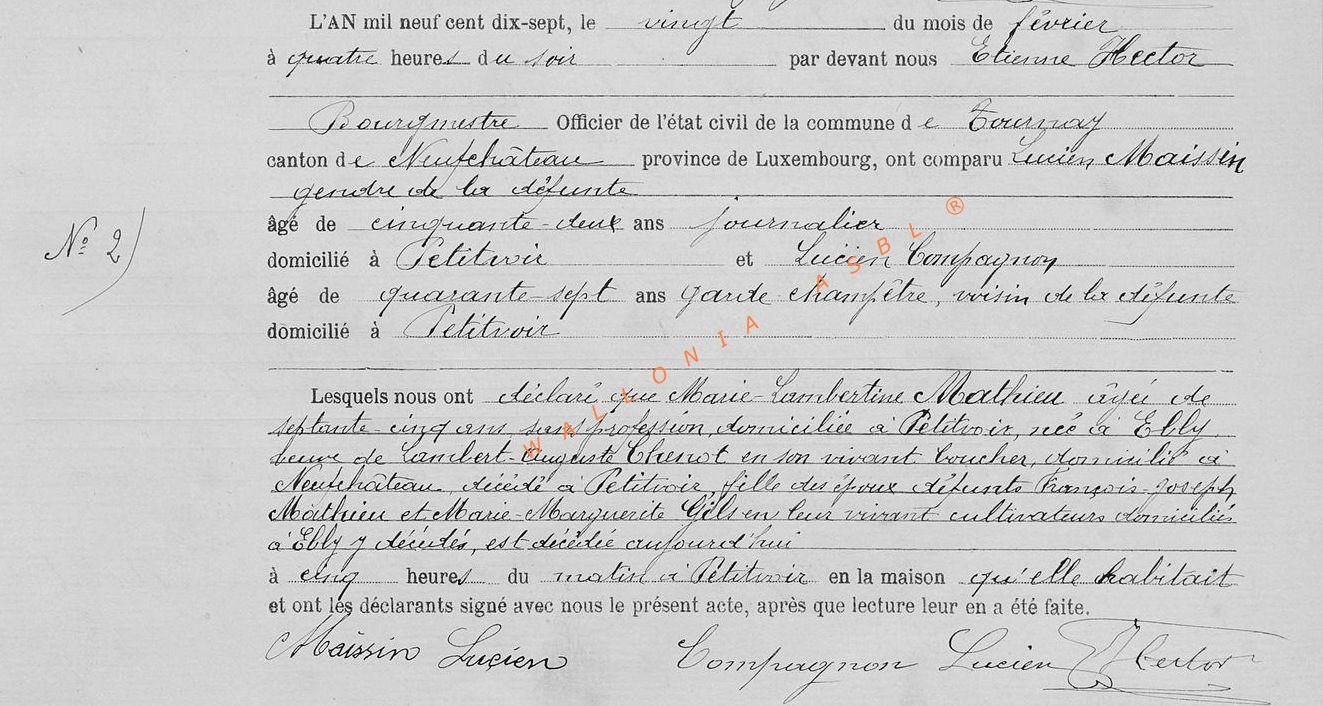 L'AN mil neuf cent dix-sept, le vingt du mois de février
à quatre heures du soir par devant nous Etienne Hector
Bourgmestre Officier de l'état civil de la commune de Tournay
canton de Neufchâteau province de Luxembourg, ont comparu Lucien Maissin
gendre de la défunte
âgé de cinquante-deux ans journalier
domicilié à Petitvoir et Lucien Compagnon
âgé de quarante-sept ans garde champêtre, voisin de la défunte
domicilié à Petitvoir
Lesquels nous ont déclaré que Marie-Lambertine Mathieu âgée de
septante-cinq ans sans profession, domiciliée à Petitvoir, née à Ebly
veuve de Lambert-Auguste Chenot en son vivant boucher, domicilié à
Neufchâteau décédé à Petitvoir, fille des époux défunts François-Joseph
Mathieu et Marie-Marguerite Gils en leur vivant cultivateurs domiciliés
à Ebly y décédés, est décédée aujourd'hui
à cinq heures du matin à Petitvoir en la maison qu'elle habitait
et ont les déclarants signé avec nous le présent acte, après que lecture leur en a été faite.
Maissin Lucien Compagnon Lucien EHector
N° 2)
WALLONIA ASBL ®